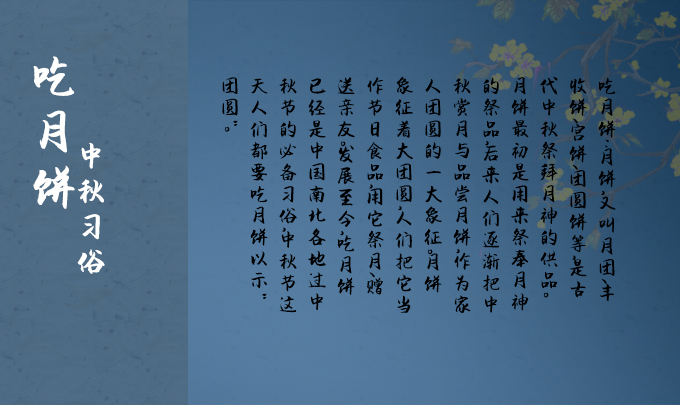 吃月饼
中秋习俗
吃月饼,月饼又叫月团、丰
收饼、宫饼、团圆饼等,是古
代中秋祭拜月神的供品。
月饼最初是用来祭奉月神
的祭品,后来人们逐渐把中
秋赏月与品尝月饼,作为家
人团圆的一大象征。月饼
象征着大团圆,人们把它当
作节日食品,用它祭月、赠
送亲友。发展至今,吃月饼
已经是中国南北各地过中
秋节的必备习俗,中秋节这
天人们都要吃月饼以示“
团圆”。